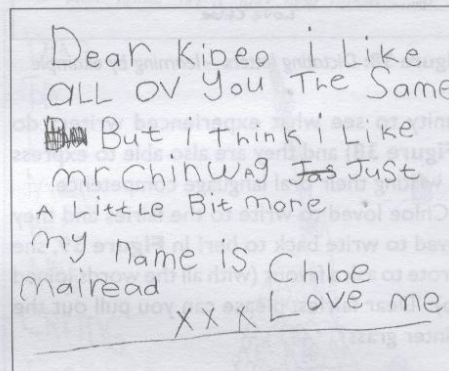 Dear Kibeo i Like
aLL ov you The Same
But i Think i Like
mr chinwag Just
A Little Bit more.
my name is Chloe
mairead
x x x Love me